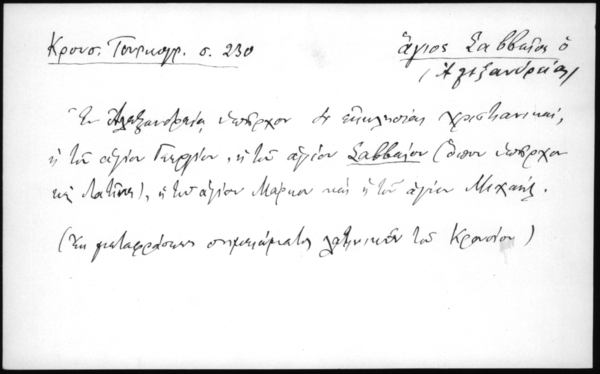 Κρουσ. Τουρκογρ. σ. 230
ἅγιος Σαββαῖος ὁ
(Ἀλεξανδρείας)
Ἐν Ἀλεξανδρείᾳ ὑπῆρχον 4 ἐκκλησίαι χριστιανικαί,
ἡ τοῦ ἁγίου Γεωργίου, ἡ τοῦ ἁγίου Σαββαίου (ὅπου ὑπῆρχον
καὶ Λατῖνοι), ἡ τοῦ ἁγίου Μάρκου καὶ ἡ τοῦ ἁγίου Μιχαήλ.
(Ἐκ μεταφράσεως σημειώματος λατινικοῦ τοῦ Κρουσίου)